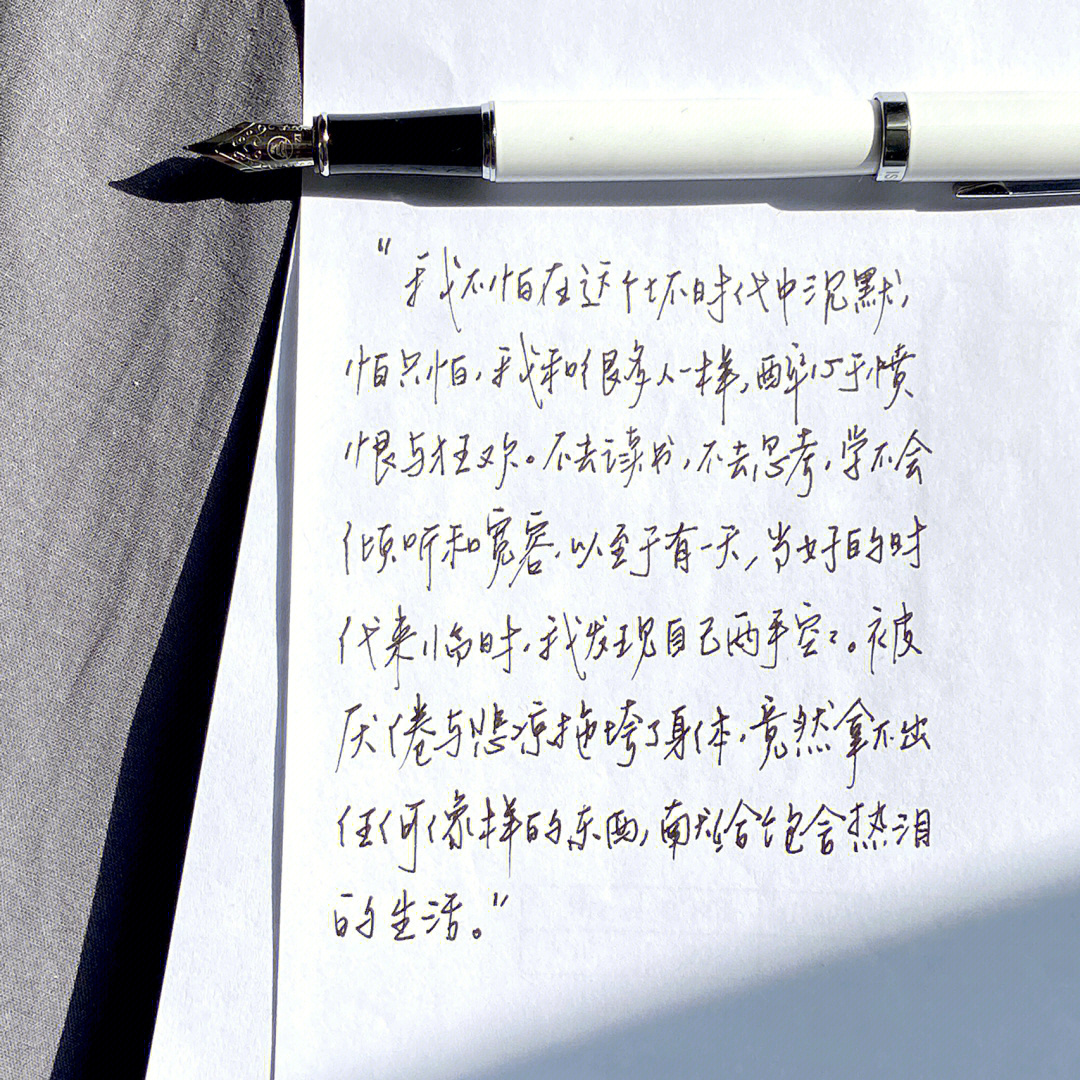 “我不怕在这个坏时代中沉默,
怕只怕,我和很多人一样,醉心于愤
恨与狂欢。不去读书,不去思考,学不会
倾听和宽容,以至于有一天,当好的时
代来临时,我发现自己两手空空。被
厌倦与悲凉拖垮了身体,竟然拿不出
任何像样的东西,献给饱含热泪
的生活。”